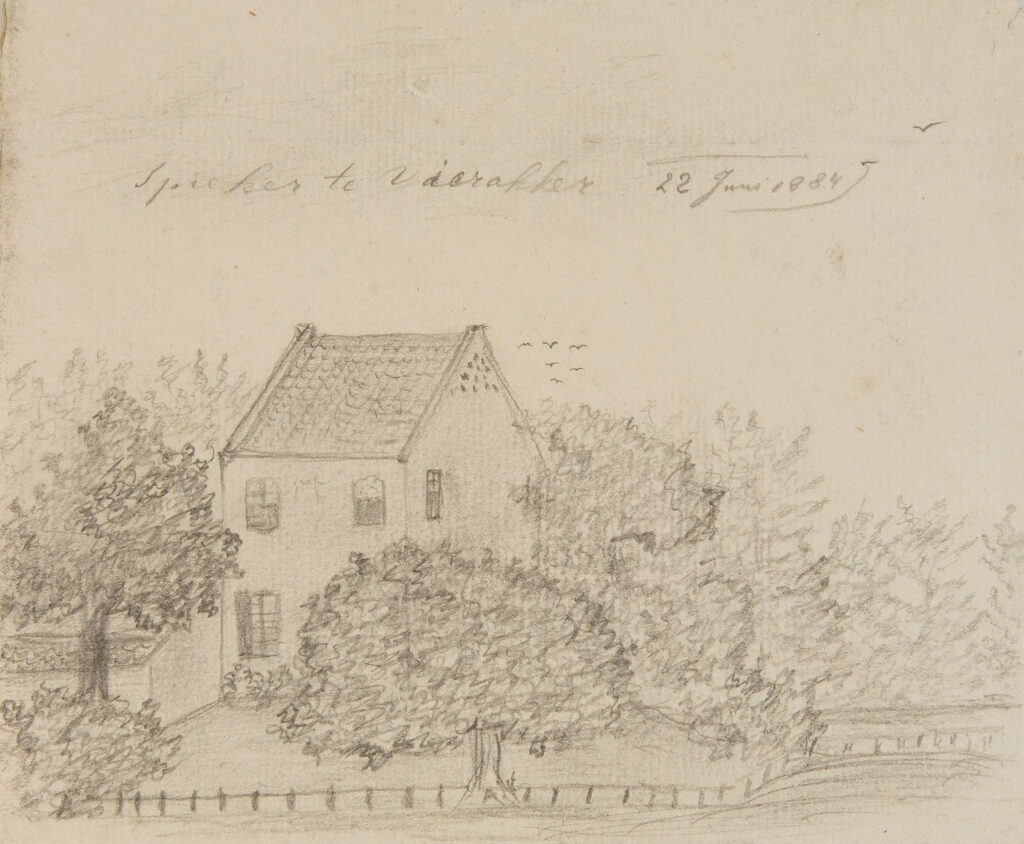 Spieker te Vierakker 22 Juni 1884